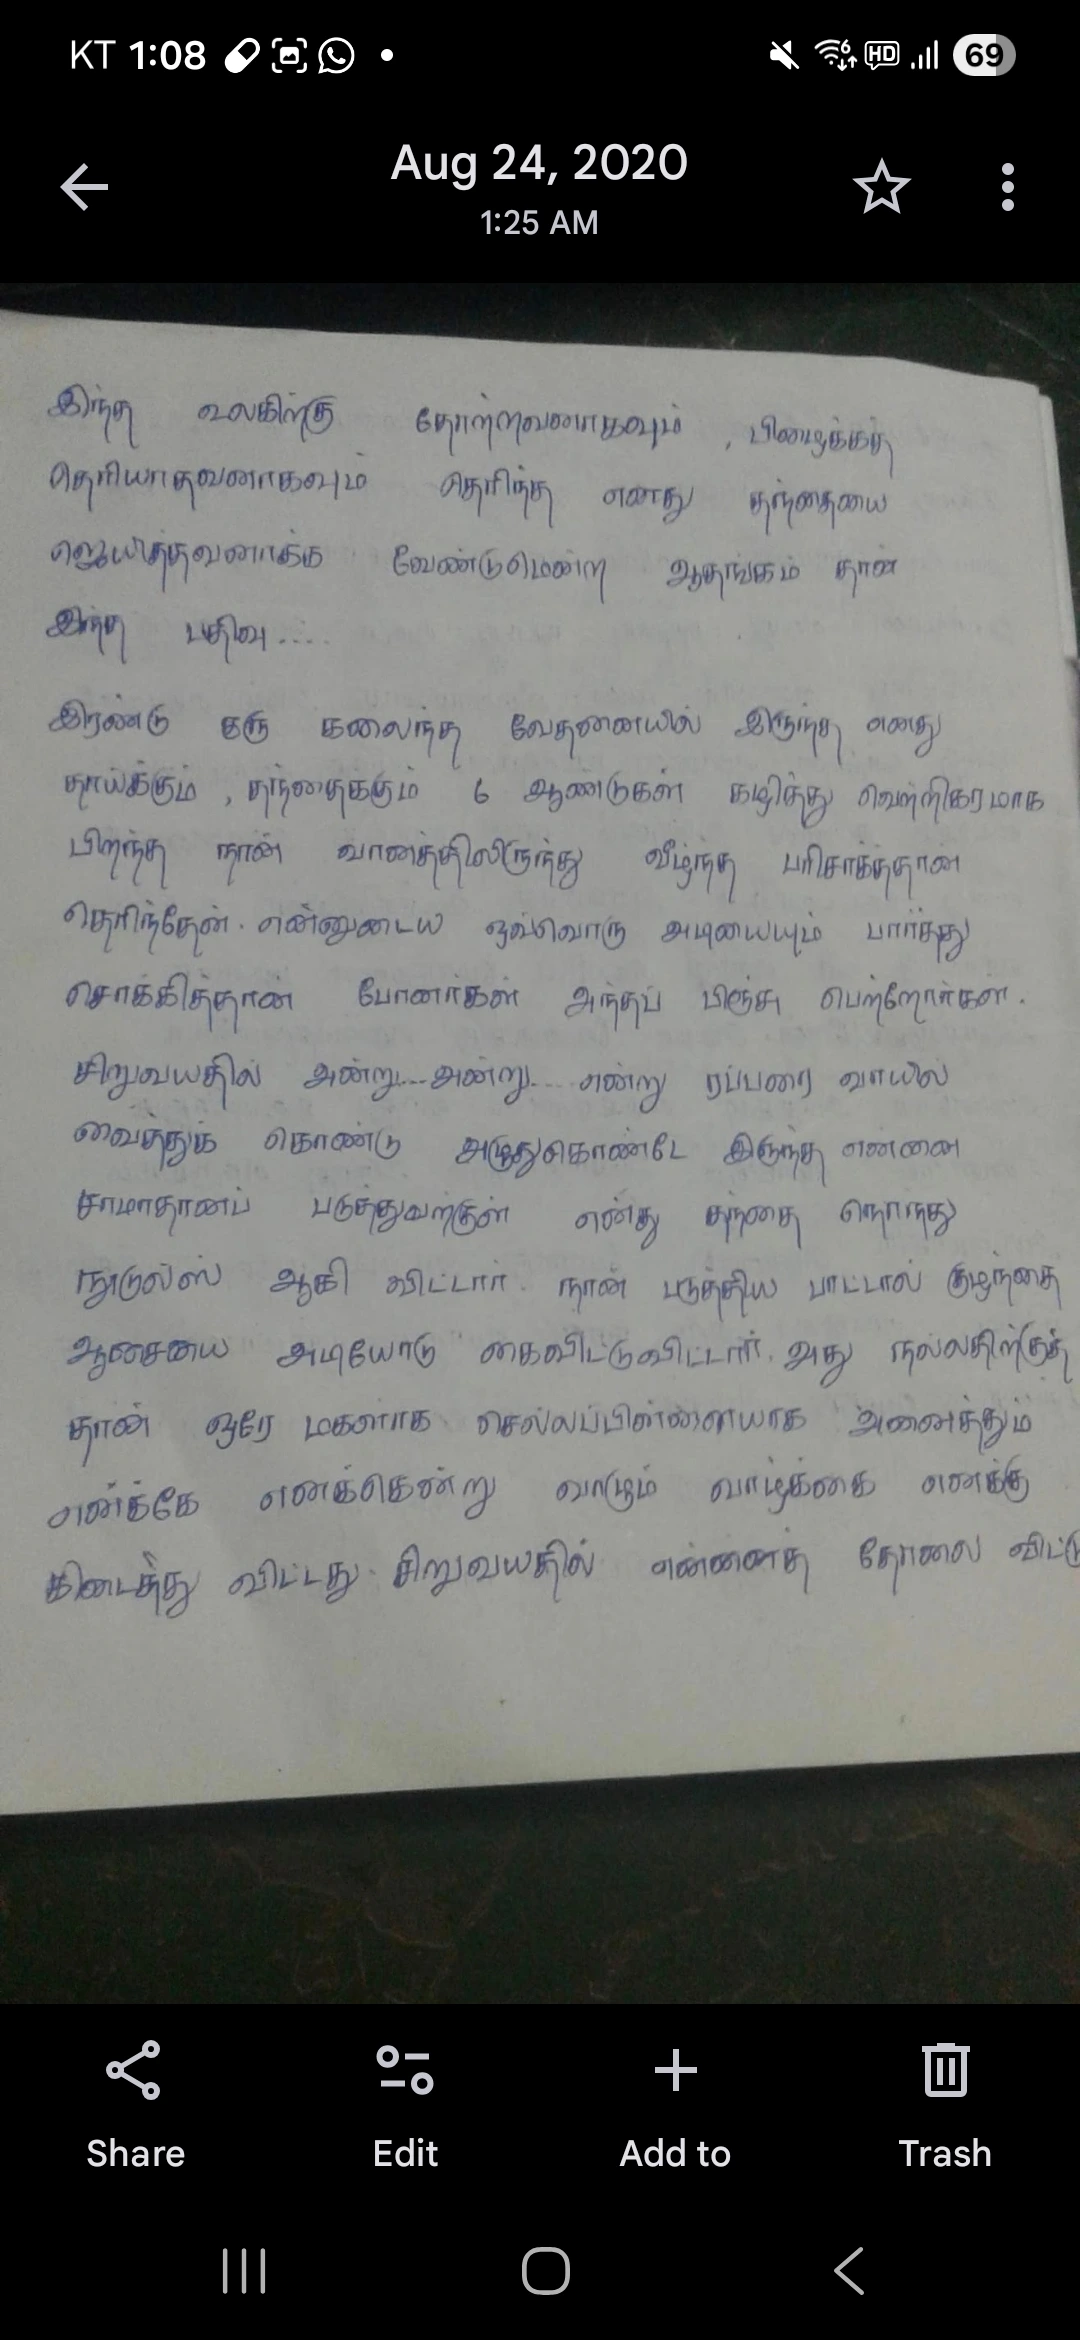 KT 1:08 HD 69
Aug 24, 2020
1:25 AM
இந்த உலகிற்கு தோற்றவனாகவும், பிழைக்கத்
தெரியாதவனாகவும் தெரிந்த எனது தந்தையை
ஜெயித்தவனாக்க வேண்டுமென்ற ஆதங்கம் தான்
இந்த பதிவு....
இரண்டு கரு கலைந்த வேதனையில் இருந்த எனது
தாய்க்கும், தந்தைக்கும் 6 ஆண்டுகள் கழித்து வெற்றிகரமாக
பிறந்த நான் வானத்திலிருந்து வீழ்ந்த பரிசாகத்தான்
தெரிந்தேன். என்னுடைய ஒவ்வொரு அடியையும் பார்த்து
சொக்கித்தான் போனார்கள் அந்தப் பிஞ்சு பெற்றோர்கள்.
சிறுவயதில் அன்று...அன்று... என்று ரப்பரை வாயில்
வைத்துக் கொண்டு அழுதுகொண்டே இருந்த என்னை
சாமாதானப் படுத்துவற்குள் எனது தந்தை நொந்து
நூடுல்ஸ் ஆகி விட்டார். நான் படுத்திய பாட்டால் குழந்தை
ஆசையை அடியோடு கைவிட்டுவிட்டார். அது நல்லதிற்குத்
தான் ஒரே மகளாக செல்லப்பிள்ளையாக அனைத்தும்
எனக்கே எனக்கென்று வாழும் வாழ்க்கை எனக்கு
கிடைத்து விட்டது. சிறுவயதில் என்னைத் தோலை விட்டு
Share Edit Add to Trash